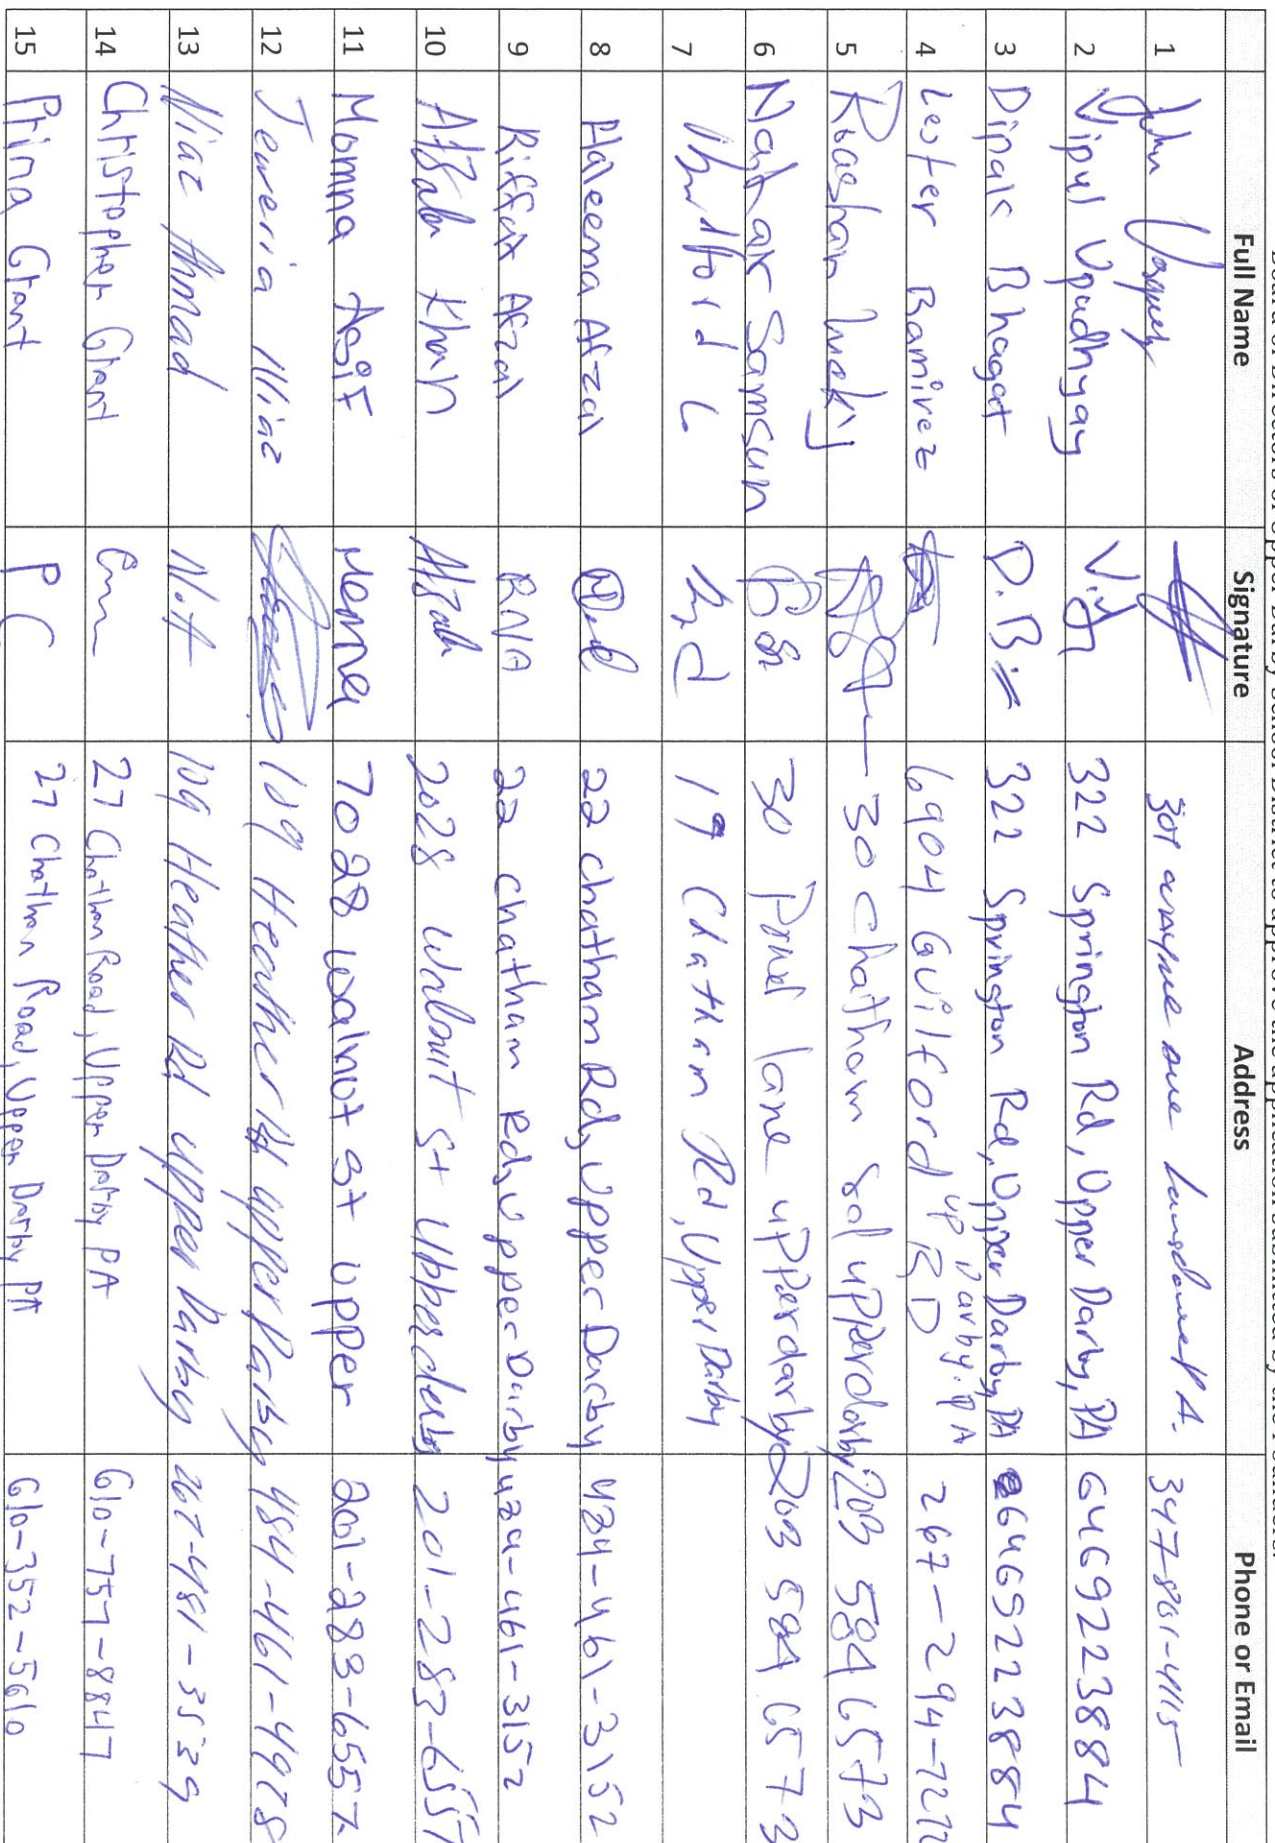 Board of Directors of Upper Darby School District to approve the application submitted by the Founder.
Full Name Signature Address Phone or Email
1 John Vasquez Lansdowne PA. 347-861-4115
2 Vipul Upadhyay 322 Springton Rd, Upper Darby, PA 6469223884
3 Dipak Bhagat D.B 322 Springton Rd, Upper Darby, PA 6469223884
4 Lester Ramirez 6904 Guilford RD UP Darby. PA 267-294-7272
5 Roashan 30 chatham upperdarby 203 584 6573
6 Samsun 30 lane upperdarby 203 584 6573
7 19 Chatham Rd, Upper Darby
8 Haleema Afzal 22 chatham Rd, Upper Darby 484-461-3152
9 Riffat Afzal R/A 22 chatham Rd, Upper Darby 484-461-3152
10 Afzala Khan Afzala 7028 Walnut st Upper derby 201-283-6557
11 Momna Asif Momna 7028 walnot st upper 201-283-6557
12 Javeria Niaz 109 Heather Rd upper Darby 484-461-4978
13 Niaz Ahmad N.A 109 Heather Rd upper Darby 267-481-3539
14 Christopher Grant 27 Chatham Road, Upper Darby PA 610-757-8847
15 Prina Grant P G 27 Chatham Road, Upper Darby PA 610-352-5610